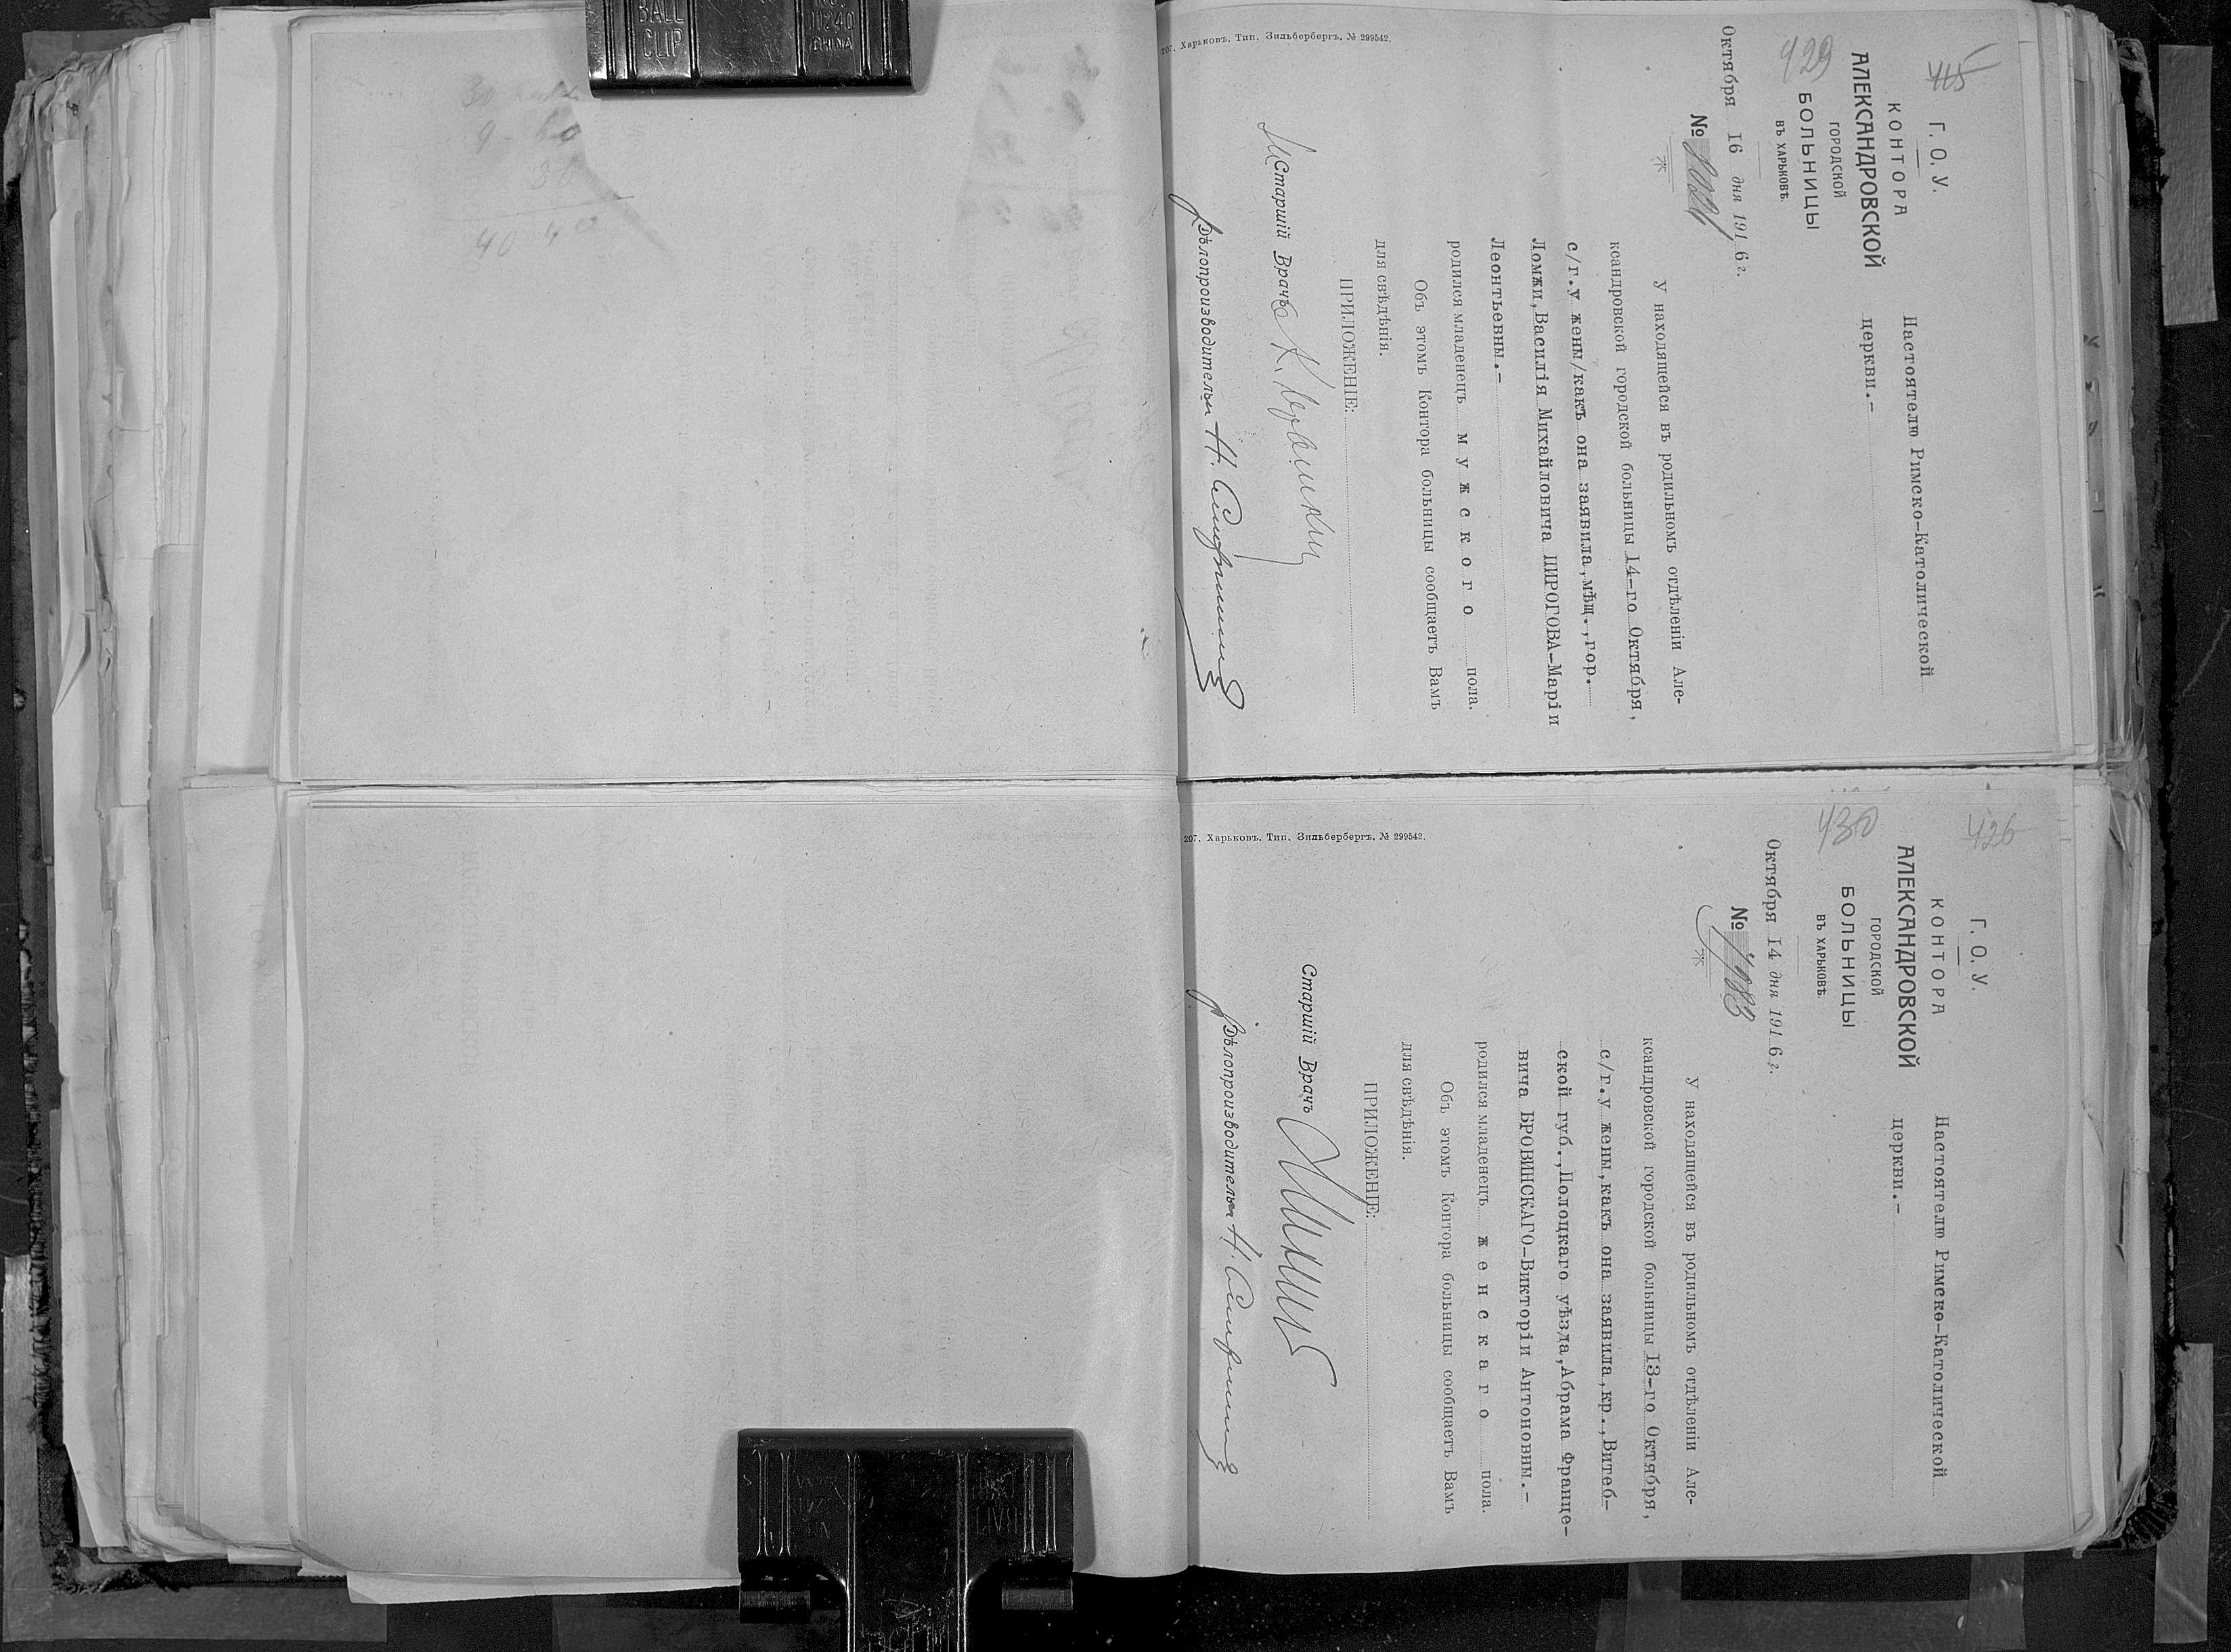 425
Г. О. У.
КОНТОРА
АЛЕКСАНДРОВСКОЙ
ГОРОДСКОЙ
429 БОЛЬНИЦЫ
ВЪ ХАРЬКОВѢ.
Октября 16 дня 1916 г.
№
Настоятелю Римско-Католической
церкви.-
У находящейся въ родильномъ отдѣленіи Але-
ксандровской городской больницы 14-го Октября,
с/г.у жены/какъ она заявила,мѣщ.,гор.
Ломжи,Василія Михайловича ПИРОГОВА-Маріи
Леонтьевны.-
родился младенецъ мужского пола.
Объ этомъ Контора больницы сообщаетъ Вамъ
для свѣдѣнія.
ПРИЛОЖЕНІЕ:
Старшій Врачъ
Дѣлопроизводитель Н.
207. Харьковъ. Тип. Зильбербергъ. № 299542.
426
Г. О. У.
КОНТОРА
АЛЕКСАНДРОВСКОЙ
ГОРОДСКОЙ
430 БОЛЬНИЦЫ
ВЪ ХАРЬКОВѢ.
Октября 14 дня 1916 г.
№ 7983
Настоятелю Римско-Католической
церкви.-
У находящейся въ родильномъ отдѣленіи Але-
ксандровской городской больницы 13-го Октября,
с/г.у жены,какъ она заявила,кр.,Витеб-
ской губ.,Полоцкаго уѣзда,Абрама Францe-
вича БРОВИНСКАГО-Викторіи Антоновны.-
родился младенецъ женскаго пола.
Объ этомъ Контора больницы сообщаетъ Вамъ
для свѣдѣнія.
ПРИЛОЖЕНІЕ:
Старшій Врачъ
Дѣлопроизводитель Н.
207. Харьковъ. Тип. Зильбербергъ. № 299542.
BALL
CLIP
11240
CHINA